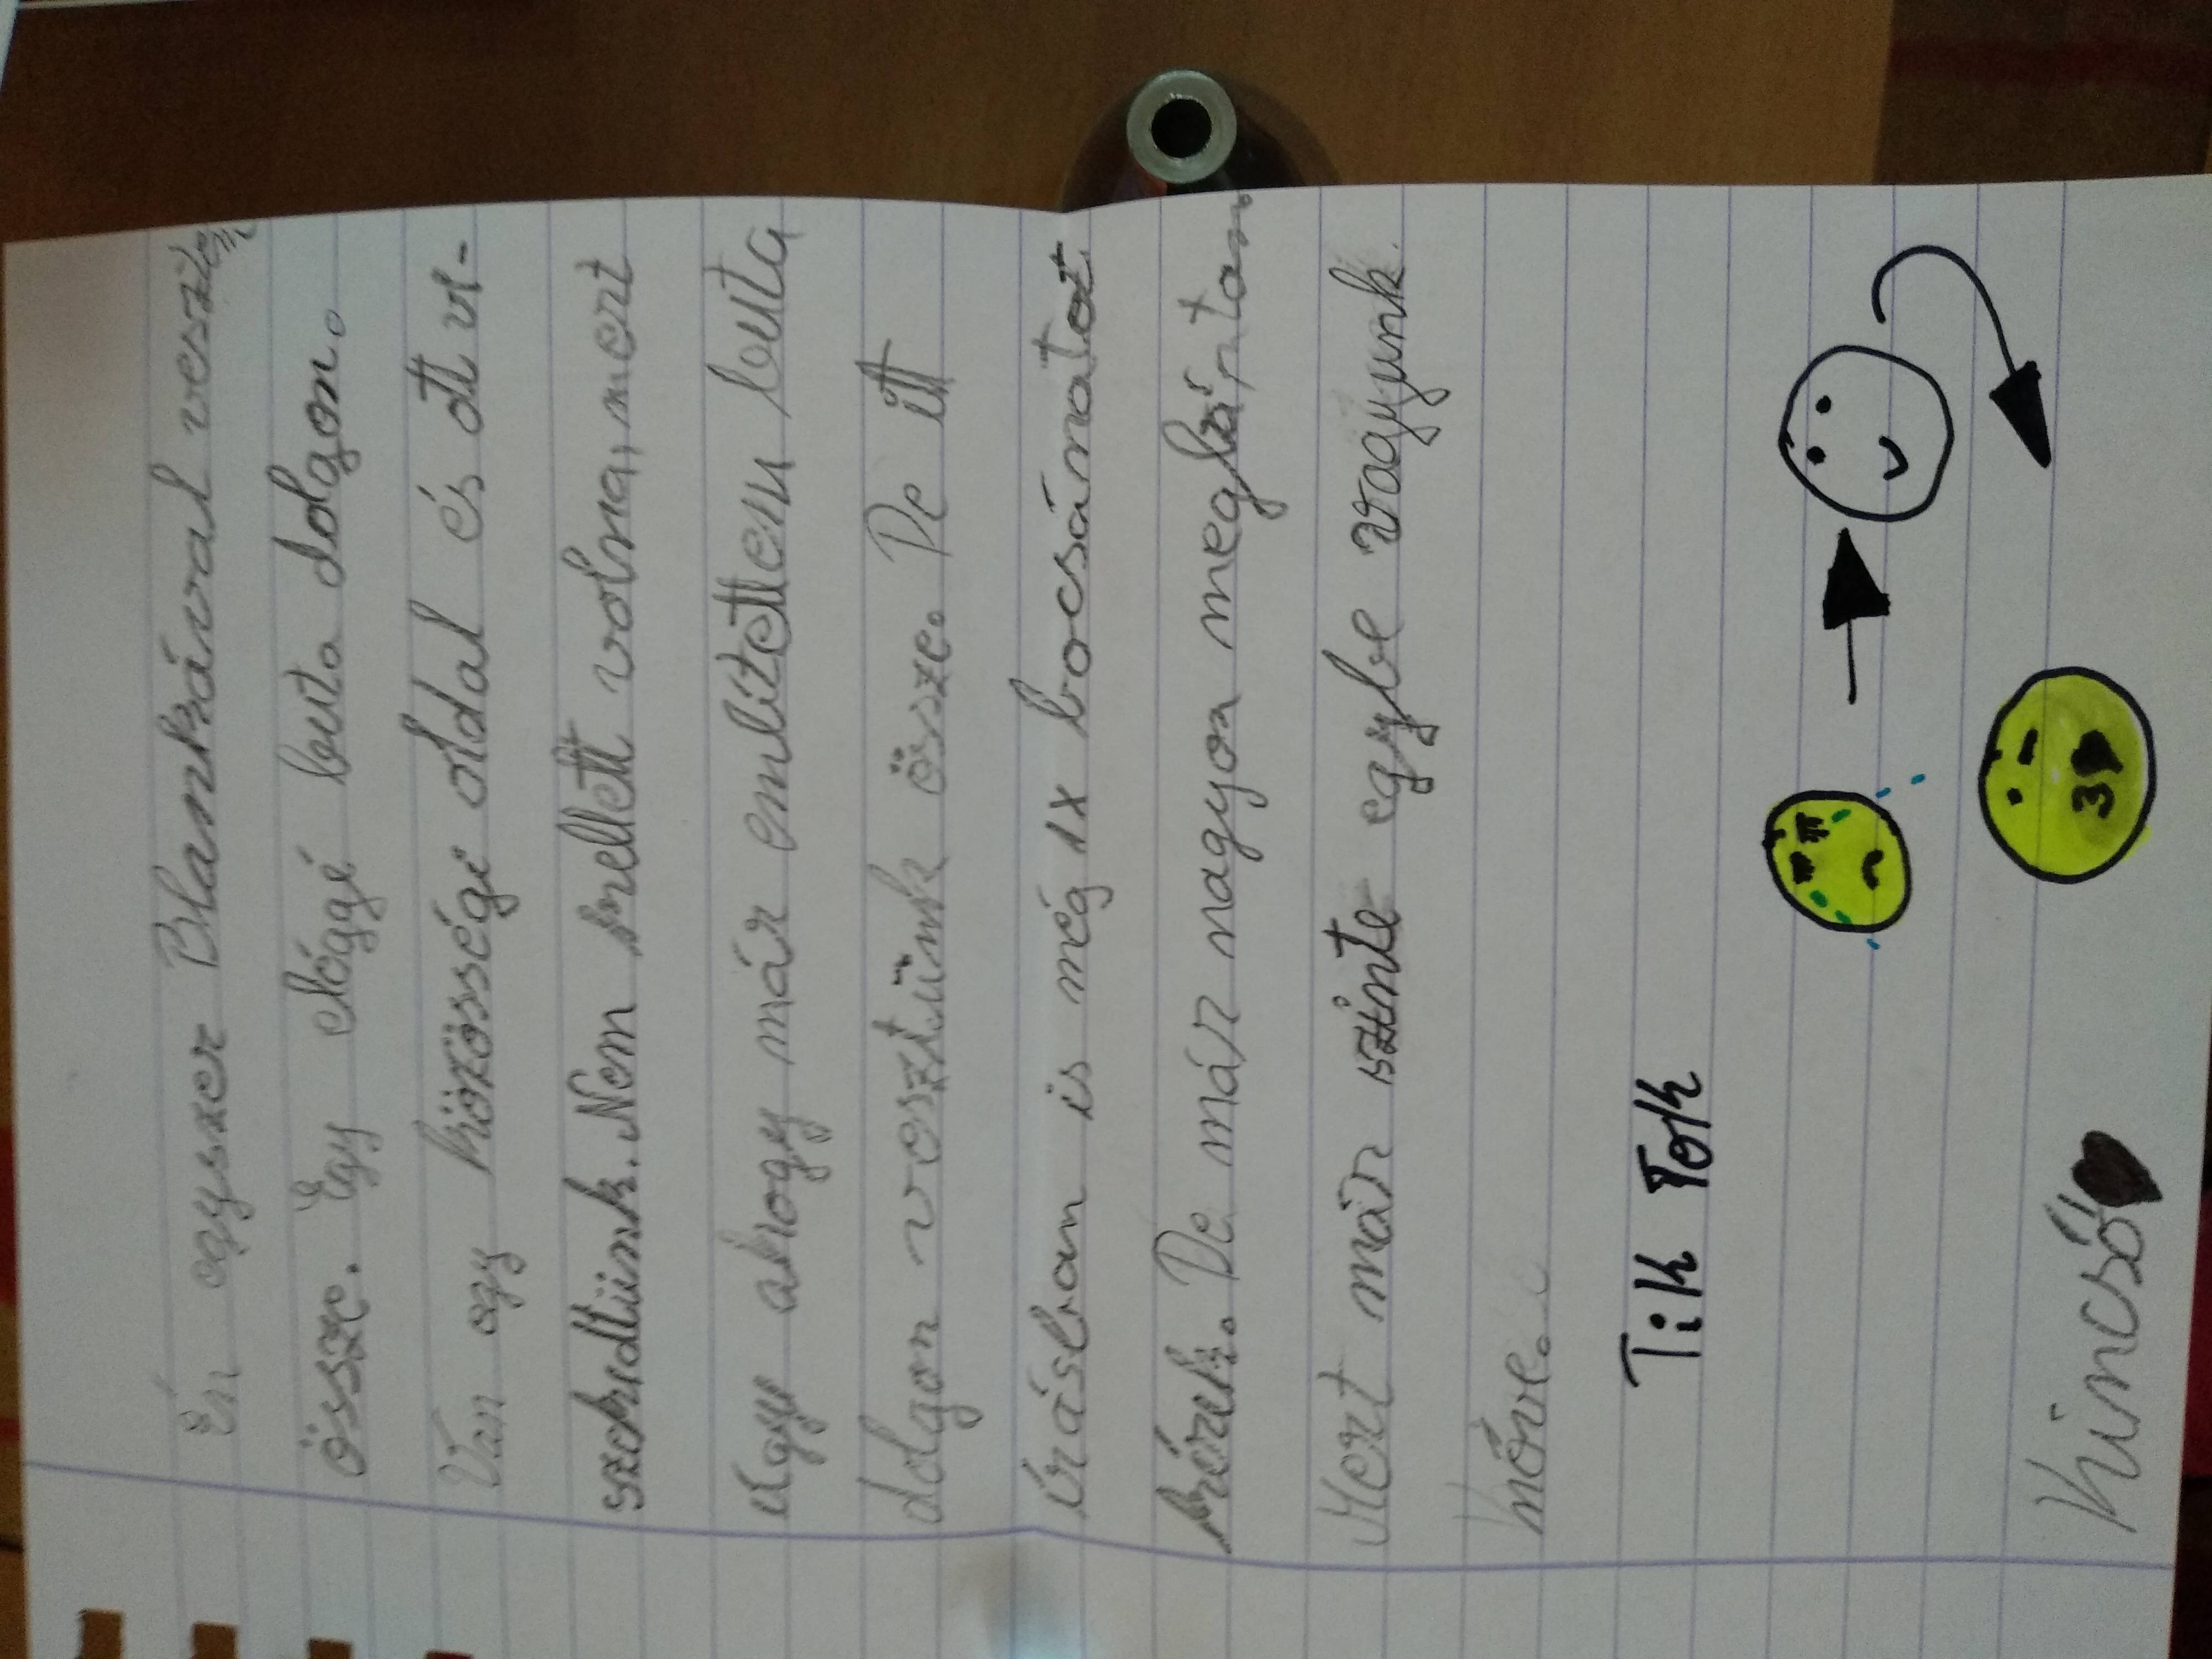 Én egyszer Blankával veszte
össze. Egy eléggé buta dolgon.
Van egy közösségi oldal és ott ve-
szekedtünk. Nem kellett volna, mert
úgy ahogy már említettem buta
dolgon vesztünk össze. De itt
írásban is még 1x bocsánatot
kérek. De már nagyon megbántam
Mert már szinte egybe vagyunk
nőve.
Tik Tok
Kincső